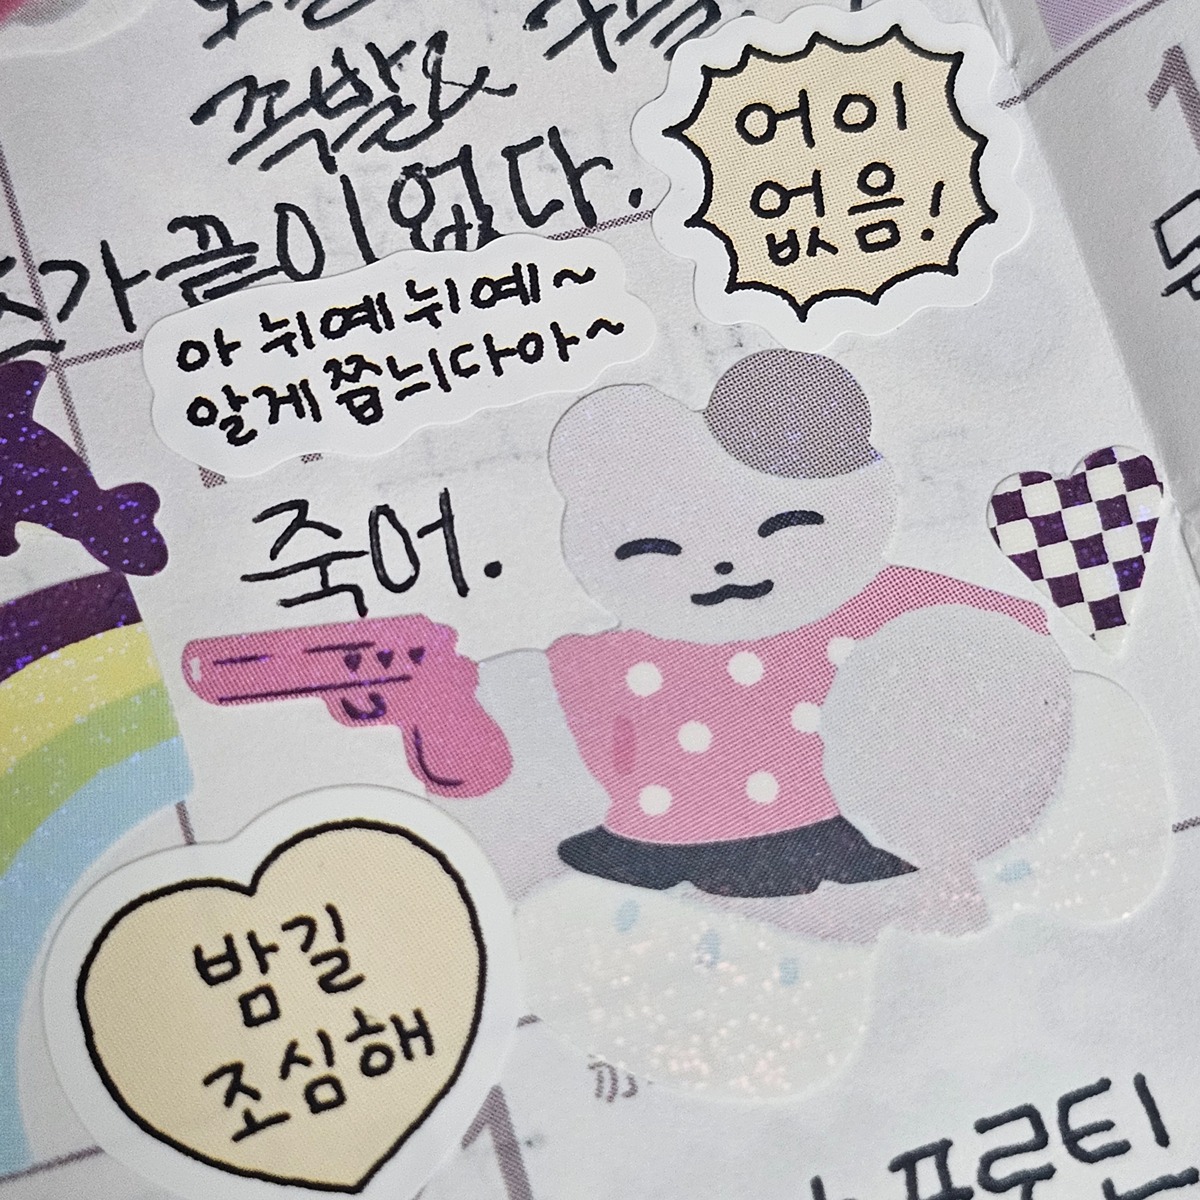 족발&
가 끝이 없다.
어이
없음!
아 뉘예뉘예~
알게쯥늬다아~
죽어.
밤길
조심해
프로틴